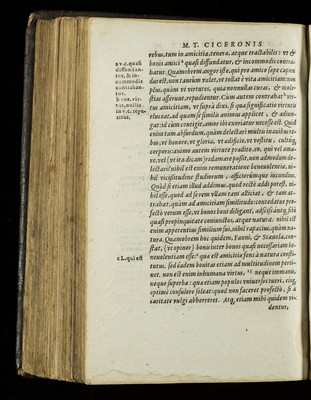 M. T. CICERONIS
rebus, tum in amicitia, tenera, atque tractabilis: vt &
bonis amici * quasi diffundatur, & incommodis contra-
batur. Quamobrem angor iste, qui pro amico sæpe capien
dus est, non tantum valet, vt tollat è vita amicitiam: non
plus, quàm vt virtutes, quia nonnullas curas, & mole-
stias afferunt, repudientur. Cùm autem contrahat b vir-
tus amicitiam, vt suprà dixi, si qua significatio virtutis
eluceat, ad quam se similis animus applicet, & adiun-
gat: id cùm contigit, amor ibi exoriatur necesse est. Quid
enim tam absurdum, quàm delectari multis inanibus re-
bus, vt honore, vt gloria, vt ædificio, vt vestitu, cultúq;
corporis: animo autem virtute prædito, eo, qui vel ama-
re, vel (vt ita dicam) redamare possit, non admodum de-
lectari? nihil est enim remuneratione beneuolentiæ, ni-
hil vicissitudine studiorum, officiorúmque iucundius.
Quòd si etiam illud addimus, quod rectè addi potest, ni-
hil esse, quod ad se rem vllam tam alliciat, & tam at-
trahat, quàm ad amicitiam similitudo: concedetur pro-
fectò verum esse, vt bonos boni diligant, adsciscántq; sibi
quasi propinquitate coniunctos, atque natura. nihil est
enim appetentius similium sui, nihil rapacius, quàm na-
tura. Quamobrem hoc quidem, Fanni, & Scæuola, con-
stat, (vt opinor) bonis inter bonos quasi necessariam be-
neuolentiam esse: c quæ est amicitiæ fons à natura consti-
tutus. sed eadem bonitas etiam ad multitudinem perti-
net. non est enim inhumana virtus, neque immanis,
neque superba: quæ etiam populos vniuersos tueri, eisq;
optimè consulere soleat: quod non faceret profectò, si à
caritate vulgi abhorreret. Atq; etiam mihi quidem vi-
dentur,
a v.c. quasi
diffundan-
tur, & in-
commodis
contrahan-
tur.
b :on, vir-
tus, nullis.
in v.c. repe-
ritur.
c L. qui est